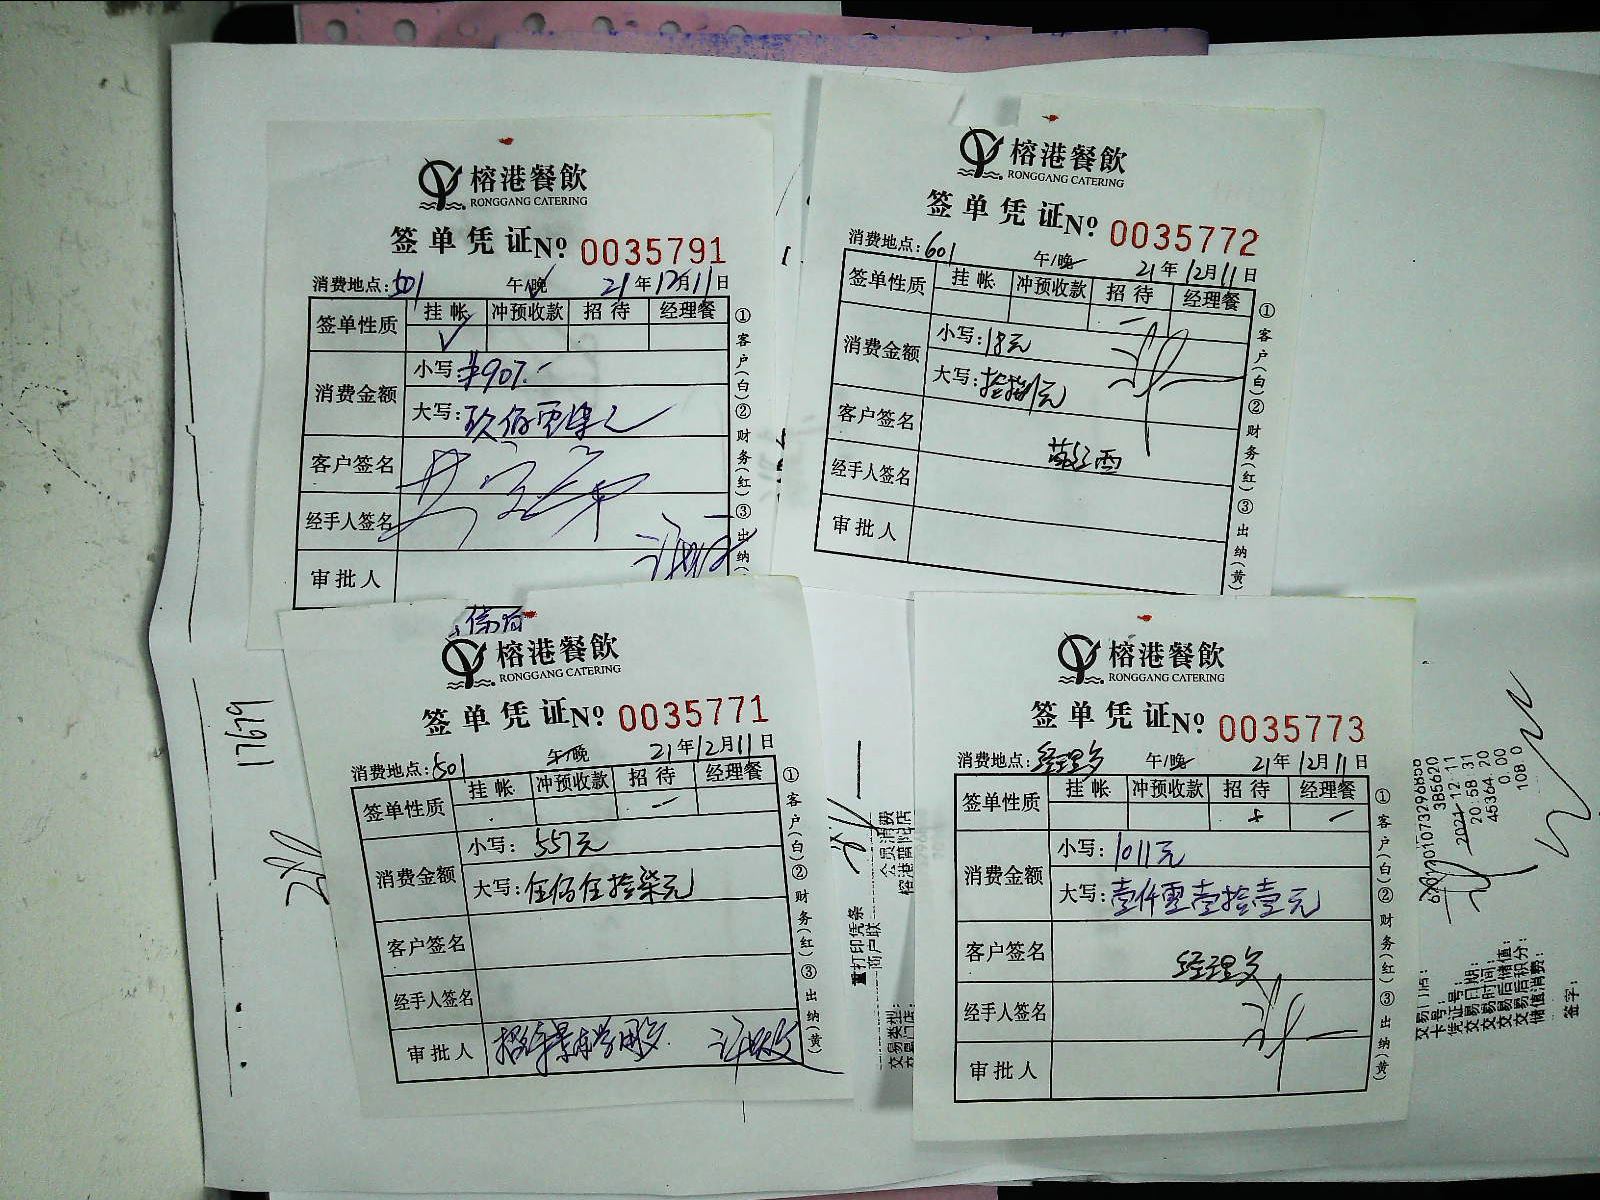 榕港餐飲
RONGGANG CATERING
签单凭证 Nº 0035791
消费地点：501 午/晚 21年12月11日
签单性质 挂帐 冲预收款 招待 经理餐
✓
消费金额 小写：¥907.-
大写：玖佰零柒元
客户签名
经手人签名
审批人
①客户(白)②财务(红)③出纳(
榕港餐飲
RONGGANG CATERING
签单凭证 Nº 0035772
消费地点：601 午/晚 21年12月11日
签单性质 挂帐 冲预收款 招待 经理餐
消费金额 小写：18元
大写：
客户签名
经手人签名
审批人
①客户(白)②财务(红)③出纳(黄)
榕港餐飲
RONGGANG CATERING
签单凭证 Nº 0035771
消费地点：501 午/晚 21年12月11日
签单性质 挂帐 冲预收款 招待 经理餐
消费金额 小写：557元
大写：伍佰伍拾柒元
客户签名
经手人签名
审批人
①客户(白)②财务(红)③出纳(黄)
榕港餐飲
RONGGANG CATERING
签单凭证 Nº 0035773
消费地点：经理 午/晚 21年12月11日
签单性质 挂帐 冲预收款 招待 经理餐
消费金额 小写：1011元
大写：壹仟零壹拾壹元
客户签名 经理
经手人签名
审批人
①客户(白)②财务(红)③出纳(黄)
17679
重打印凭条
商户联
会员消费
交易类型：
交易门店：
卡号：
凭证号： 385620
交易日期： 2021-12-11
交易时间： 20:58:31
交易后储值： 45364.20
交易后积分： 0.00
储值消费： 108.0
签字：